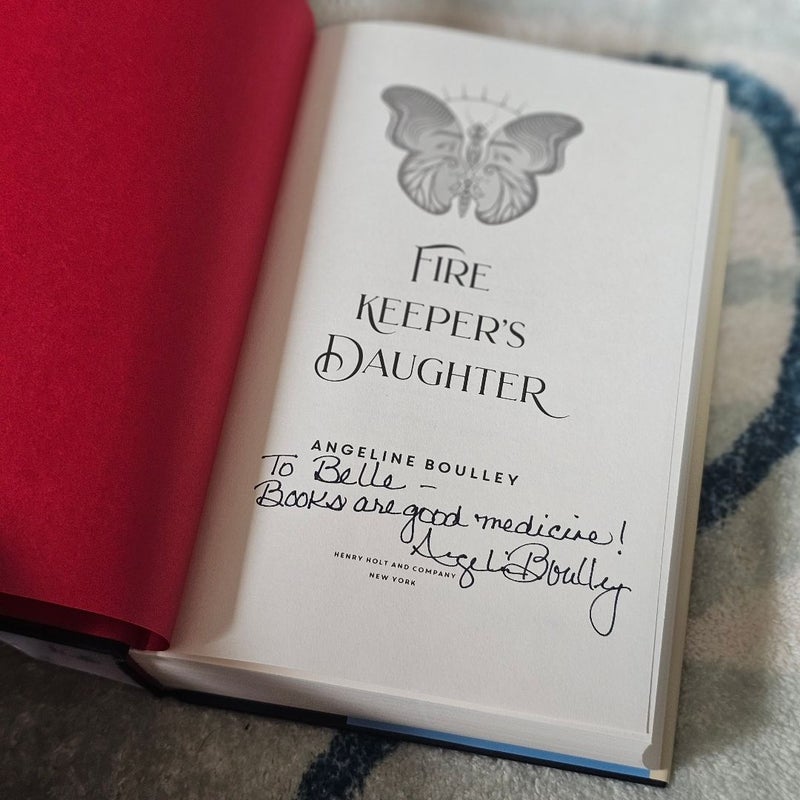 FIRE
KEEPER'S
DAUGHTER
ANGELINE BOULLEY
To Belle –
Books are good medicine!
Angeline Boulley
HENRY HOLT AND COMPANY
NEW YORK